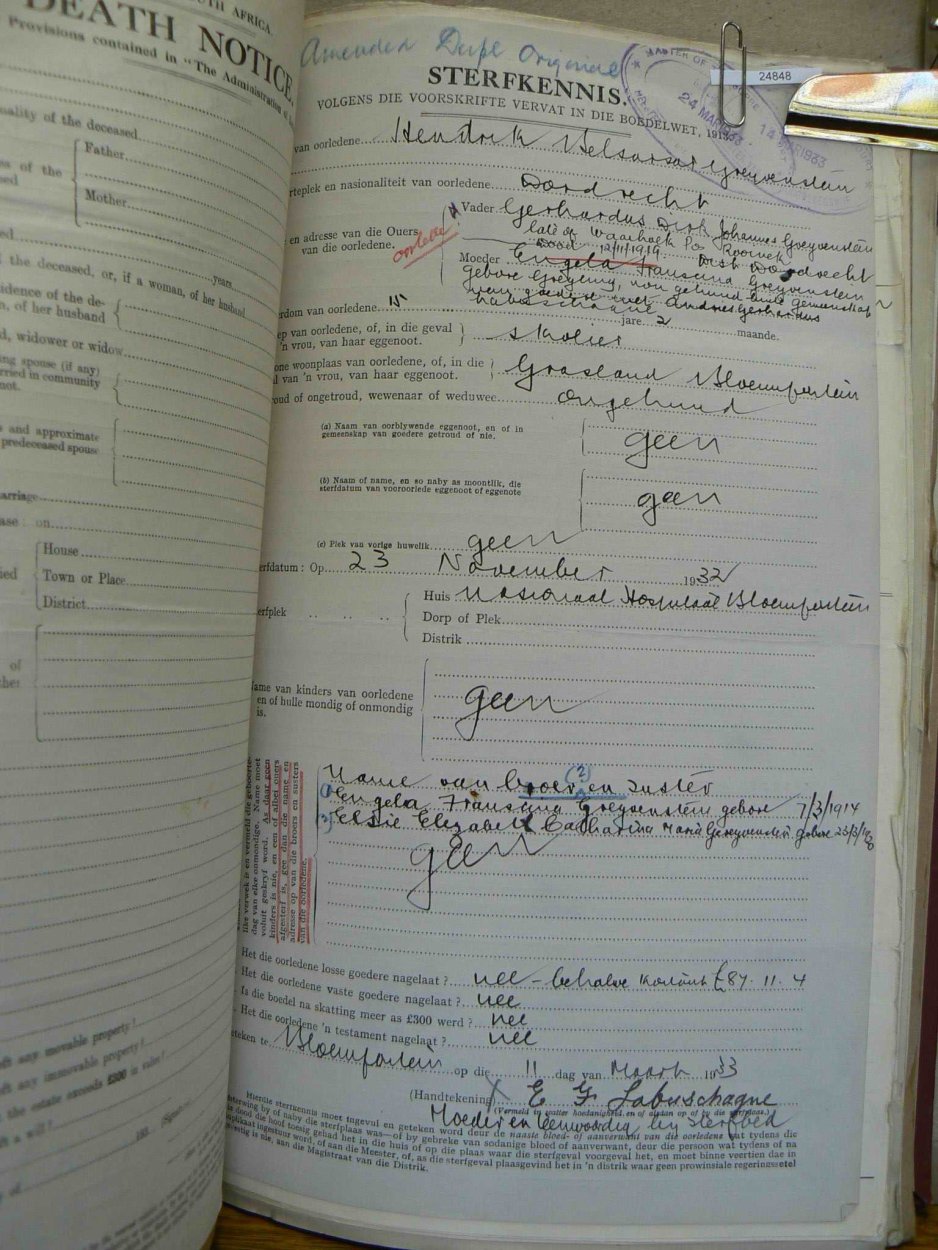 UTH AFRICA.
DEATH NOTICE.
Provisions contained in "The Administration of
ality of the deceased
Father
of the
sed
Mother
years
the deceased, or, if a woman, of her husband
idence of the de-
, of her husband
d, widower or widow
ing spouse (if any)
rried in community
not.
s and approximate
predeceased spouse
arriage
ase : on
House
Town or Place
District
ft any movable property?
ft any immovable property?
the estate exceeds £300 in value?
ft a will?
Amended Dupl Original
MASTER OF
24 MAR 1933
24848
STERFKENNIS.
VOLGENS DIE VOORSKRIFTE VERVAT IN DIE BOEDELWET, 1913.
van oorledene Hendrik Belsasar Greyvenstein
rteplek en nasionaliteit van oorledene Dordrecht
en adresse van die Ouers
van die oorledene.
oorlede
Vader Gerhardus Dirk Johannes Greyvenstein
late of Waaihoek Po Rooinek
dood 12/11/1919 Dist Dordrecht
Moeder Engela Fransina Greyvenstein
gebore Greyling, nou getroud
met Andries Gerhardus
Labuschagne
rdom van oorledene 15 jare 2 maande.
ep van oorledene, of, in die geval
'n vrou, van haar eggenoot.
skolier
one woonplaas van oorledene, of, in die
l van 'n vrou, van haar eggenoot.
Grasland Bloemfontein
roud of ongetroud, wewenaar of weduwee ongetroud
(a) Naam van oorblywende eggenoot, en of in
gemeenskap van goedere getroud of nie.
geen
(b) Naam of name, en so naby as moontlik, die
sterfdatum van vooroorlede eggenoot of eggenote
geen
(c) Plek van vorige huwelik geen
erfdatum : Op 23 November 1932
erfplek
Huis Nasionaal Hospitaal Bloemfontein
Dorp of Plek
Distrik
ame van kinders van oorledene
en of hulle mondig of onmondig
is.
geen
like verwek is en vermeld die geboorte-
dag van elke onmondige. Name moet
voluit geskryf word. As daar geen
kinders is nie, en een of albei ouers
afgesterf is, gee dan die name en
adresse op van die broers en susters
van die oorledene.
Name van broer en suster (2)
(1) Engela Fransina Greyvenstein gebore 7/3/1914
(2) Elsie Elizabeth Catharina Maria Greyvenstein gebore 23/3/1920
geen
Het die oorledene losse goedere nagelaat? nee – behalwe kontant £87. 11. 4
Het die oorledene vaste goedere nagelaat? nee
Is die boedel na skatting meer as £300 werd? nee
Het die oorledene 'n testament nagelaat? nee
teken te Bloemfontein op die 11 dag van Maart 1933
(Handtekening) X E F Labuschagne
(Vermeld in watter hoedanigheid en of aldan op of by die sterfplaas.)
Moeder en teenwoordig by sterfbed
Hierdie sterfkennis moet ingevul en geteken word deur de naaste bloed- of aanverwant van die oorledene wat tydens die